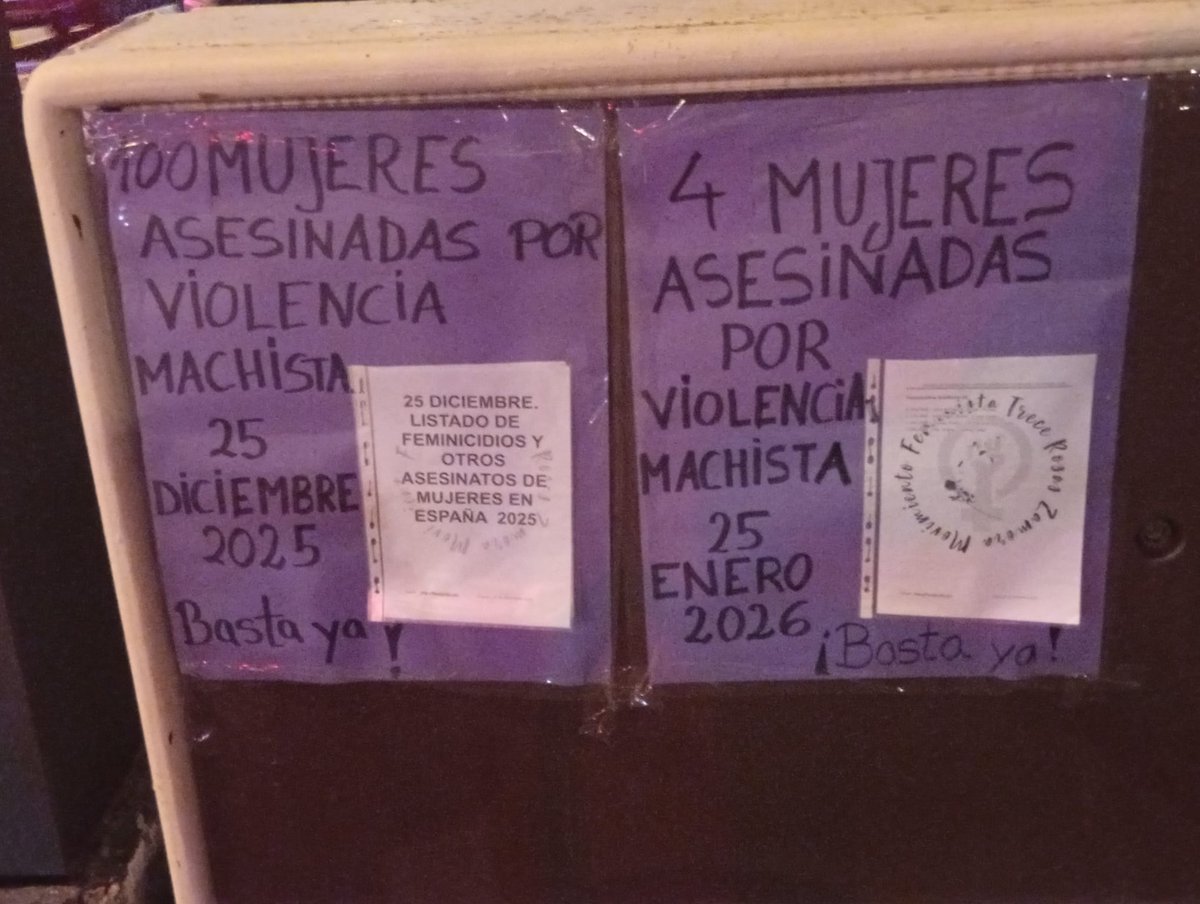 100 MUJERES
ASESINADAS POR
VIOLENCIA
MACHISTA
25
DICIEMBRE
2025
Basta ya!
25 DICIEMBRE.
LISTADO DE
FEMINICIDIOS Y
OTROS
ASESINATOS DE
MUJERES EN
ESPAÑA 2025
4 MUJERES
ASESINADAS
POR
VIOLENCIA
MACHISTA
25
ENERO
2026
¡Basta ya!
Movimiento Feminista Trece Rosas Zamora